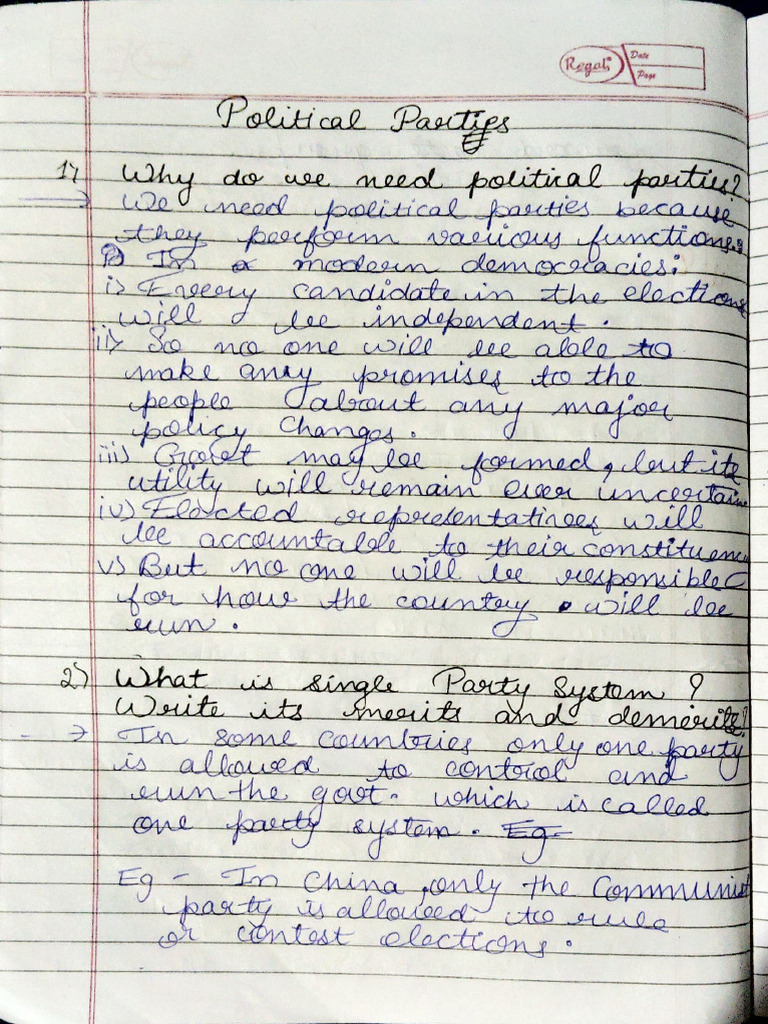 Regal
Date
Page
Political Parties
1) Why do we need political parties?
→ We need political parties because
they perform various functions.
In modern democracies:
i) Every candidate in the elections
will be independent.
ii) So no one will be able to
make any promises to the
people about any major
policy changes.
iii) Govt may be formed, but its
utility will remain ever uncertain
iv) Elected representatives will
be accountable to their constituency
v) But no one will be responsible
for how the country will be
run.
2) What is single Party System ?
Write its merits and demerits?
→ In some countries only one party
is allowed to control and
run the govt. which is called
one party system. Eg
Eg - In China, only the Communist
party is allowed to rule
or contest elections.